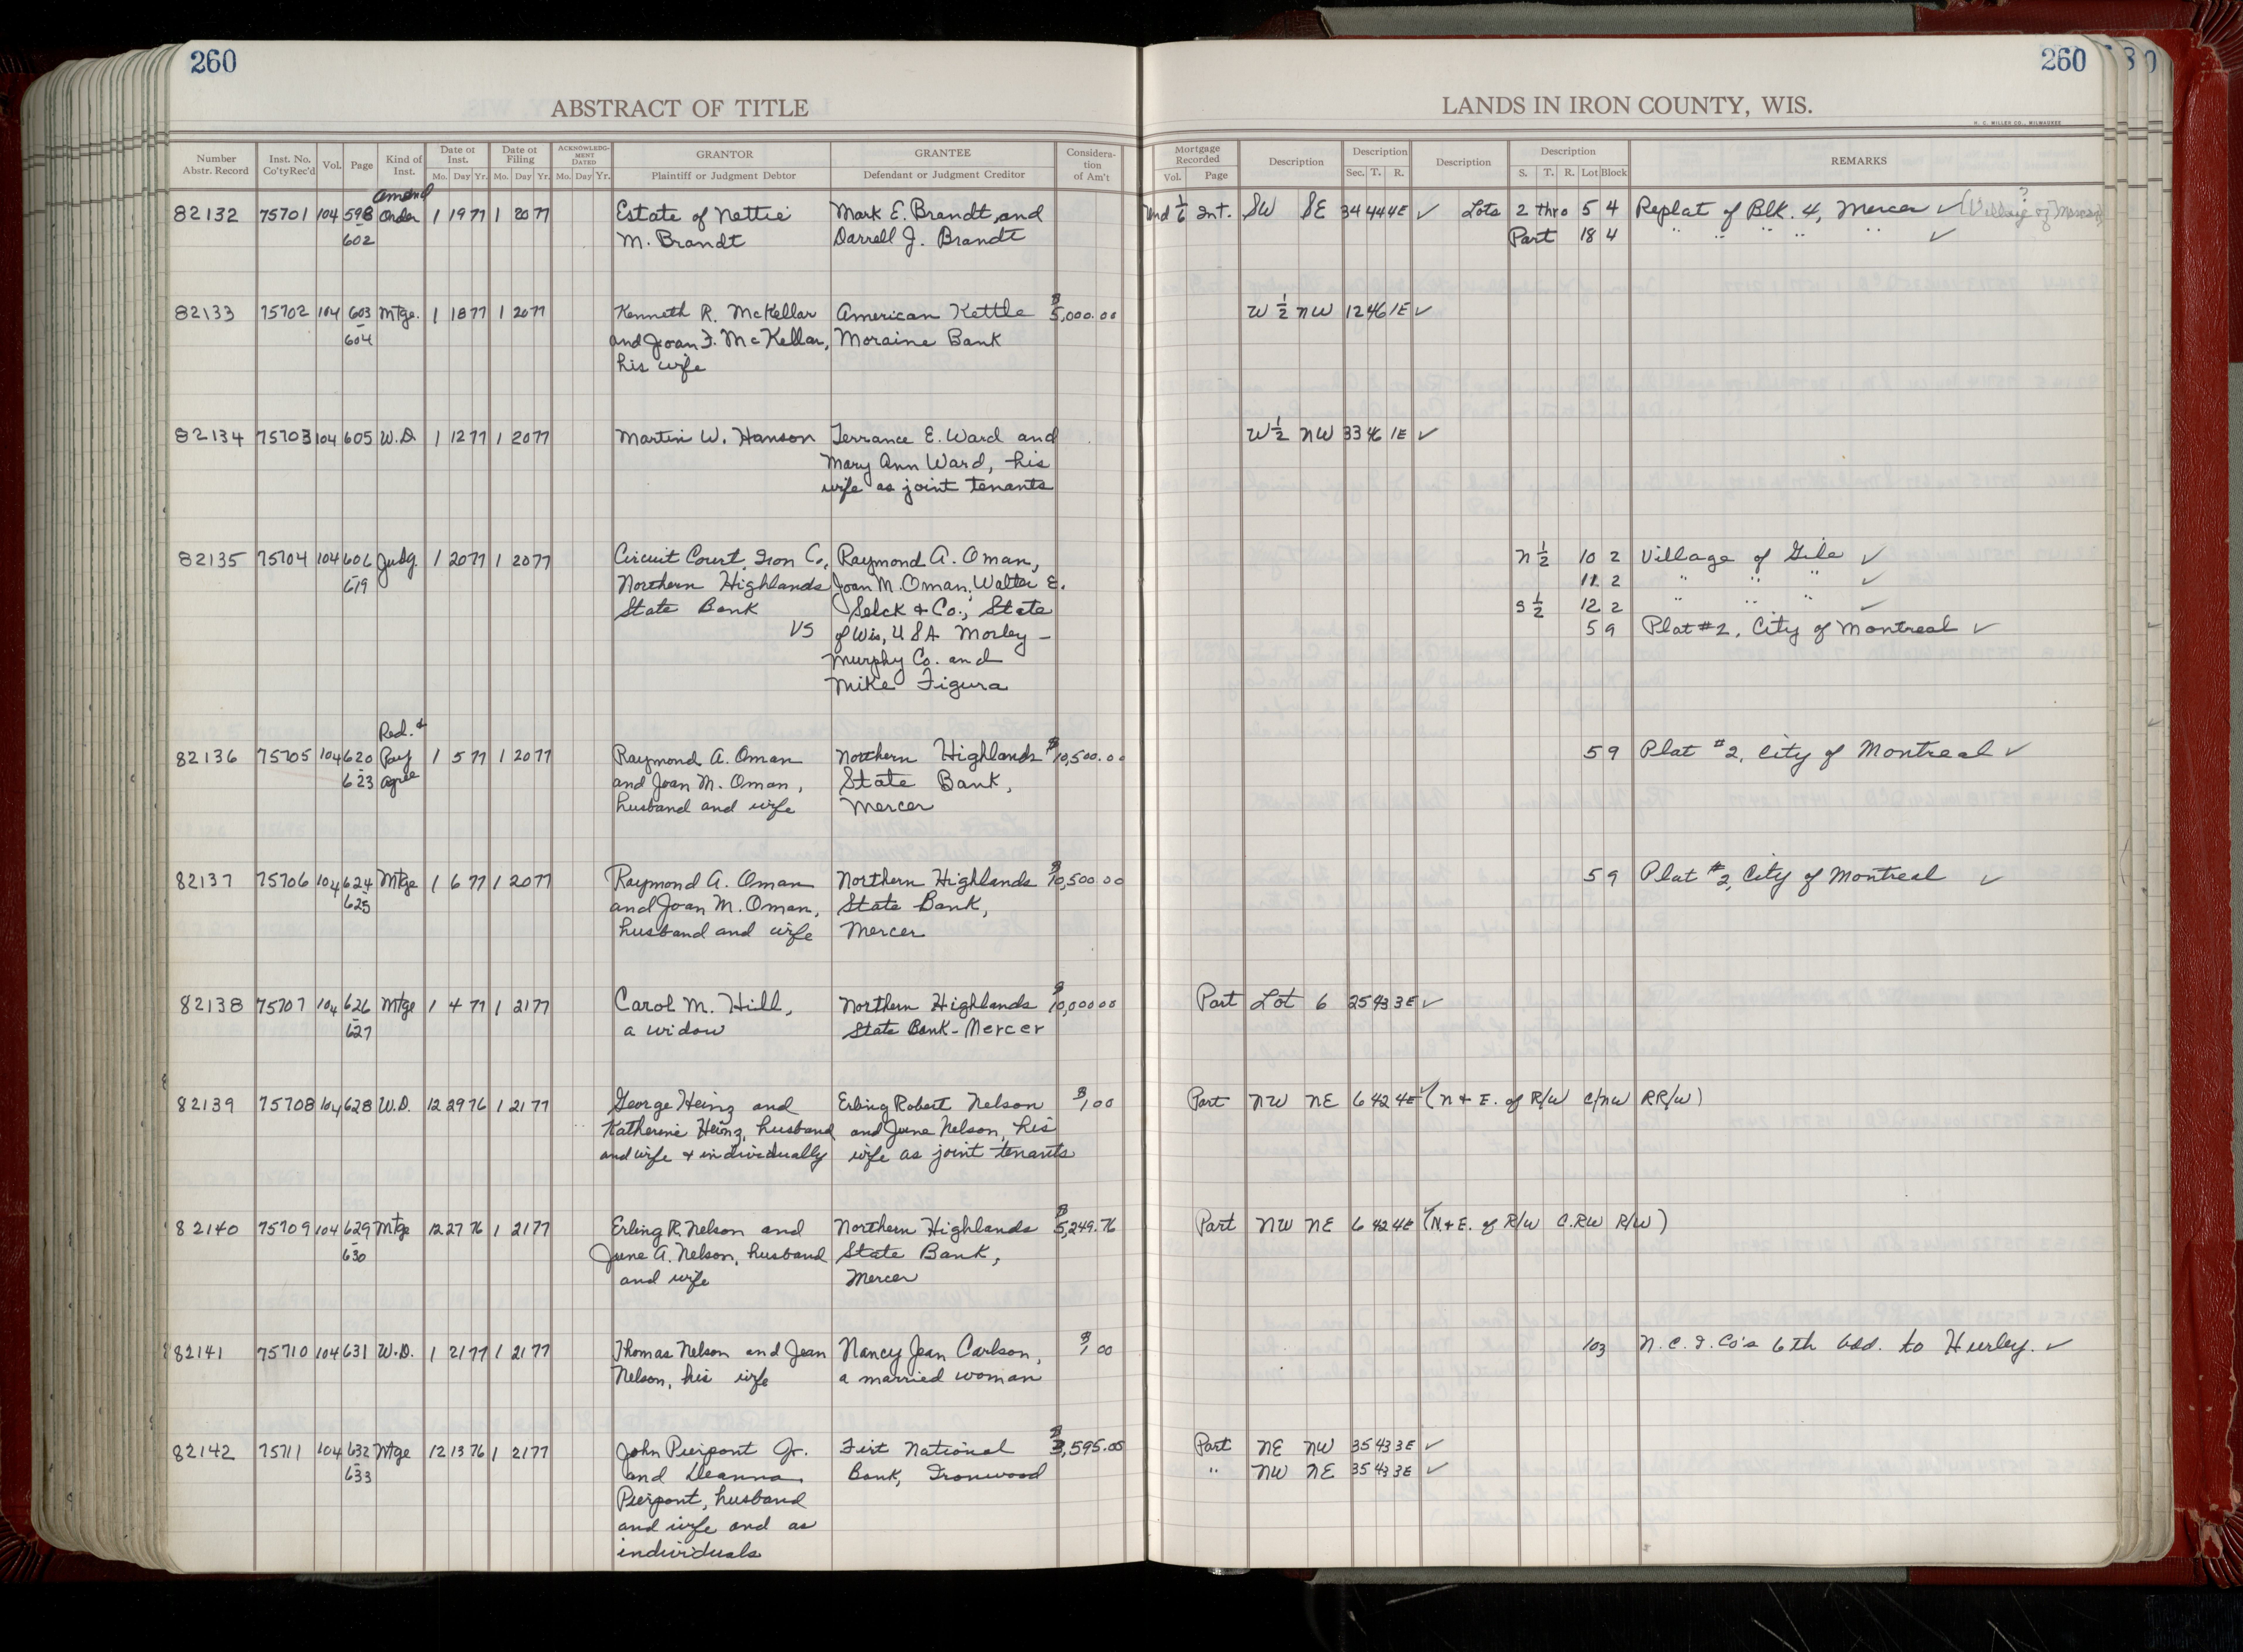 260
260
ABSTRACT OF TITLE
LANDS IN IRON COUNTY, WIS.
H. C. MILLER CO., MILWAUKEE
Number Abstr. Record
Inst. No. Co'ty Rec'd
Vol.
Page
Kind of Inst.
Date of Inst. Mo. Day Yr.
Date of Filing Mo. Day Yr.
ACKNOWLEDG-MENT DATED Mo. Day Yr.
GRANTOR Plaintiff or Judgment Debtor
GRANTEE Defendant or Judgment Creditor
Considera-tion of Am't
Mortgage Recorded Vol. Page
Description
Description Sec. T. R.
Description
Description S. T. R. Lot Block
REMARKS
Amend
82132 75701 104 598 Order 1 19 77 1 20 77 Estate of Nettie Mark E. Brandt and Und 1/6 Int. SW SE 34 44 4E ✓ Lots 2 thro 5 4 Replat of Blk. 4, Mercer ✓ (Village of Mercer)
- 602 M. Brandt Darrell J. Brandt Part 18 4 " " " " " ✓
82133 75702 104 603 Mtge. 1 18 77 1 20 77 Kenneth R. McKellar American Kettle $5,000.00 W 1/2 NW 12 46 1E ✓
- 604 and Joan F. McKellar, Moraine Bank
his wife
82134 75703 104 605 W.D. 1 12 77 1 20 77 Martin W. Hanson Terrance E. Ward and W 1/2 NW 33 46 1E ✓
Mary Ann Ward, his
wife as joint tenants
82135 75704 104 606 Judg. 1 20 77 1 20 77 Circuit Court, Iron Co, Raymond A. Oman, N 1/2 10 2 Village of Gile ✓
- 619 Northern Highlands Joan M. Oman, Walter E. 11 2 " " " ✓
State Bank Selck & Co., State S 1/2 12 2 " " " ✓
VS of Wis, U S A Morley - 5 9 Plat #2, City of Montreal ✓
Murphy Co. and
Mike Figura
Red. &
82136 75705 104 620 Pay 1 5 77 1 20 77 Raymond A. Oman Northern Highlands $10,500.00 5 9 Plat #2, City of Montreal ✓
- 623 agree and Joan M. Oman, State Bank,
husband and wife Mercer
82137 75706 104 624 Mtge 1 6 77 1 20 77 Raymond A. Oman Northern Highlands $10,500.00 5 9 Plat #2, City of Montreal ✓
- 625 and Joan M. Oman, State Bank,
husband and wife Mercer
82138 75707 104 626 Mtge 1 4 77 1 21 77 Carol M. Hill, Northern Highlands $10,000.00 Part Lot 6 25 43 3E ✓
- 627 a widow State Bank - Mercer
82139 75708 104 628 W.D. 12 29 76 1 21 77 George Heinz and Erling Robert Nelson $1.00 Part NW NE 6 42 4E ✓ (N + E. of R/W C/NW RR/W)
Katherine Heinz, husband and June Nelson, his
and wife & individually wife as joint tenants
82140 75709 104 629 Mtge 12 27 76 1 21 77 Erling R. Nelson and Northern Highlands $5,249.76 Part NW NE 6 42 4E ✓ (N + E. of R/W C.RW R/W)
- 630 June A. Nelson, husband State Bank,
and wife Mercer
82141 75710 104 631 W.D. 1 21 77 1 21 77 Thomas Nelson and Jean Nancy Jean Carlson, $1.00 103 N.C.I. Co's 6th Add. to Hurley. ✓
Nelson, his wife a married woman
82142 75711 104 632 Mtge 12 13 76 1 21 77 John Pierpont Jr. First National $3,595.00 Part NE NW 35 43 3E ✓
- 633 and Deanna Bank, Ironwood " NW NE 35 43 3E ✓
Pierpont, husband
and wife and as
individuals